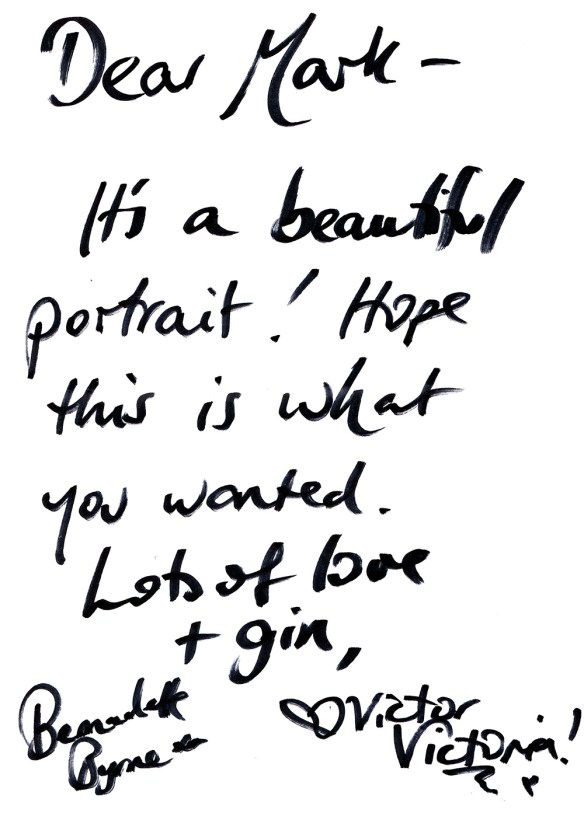 Dear Mark -
It's a beautiful
portrait! Hope
this is what
you wanted.
Lots of love
+ gin,
Bernadette
Byrne
♡ Victor
Victoria!
x